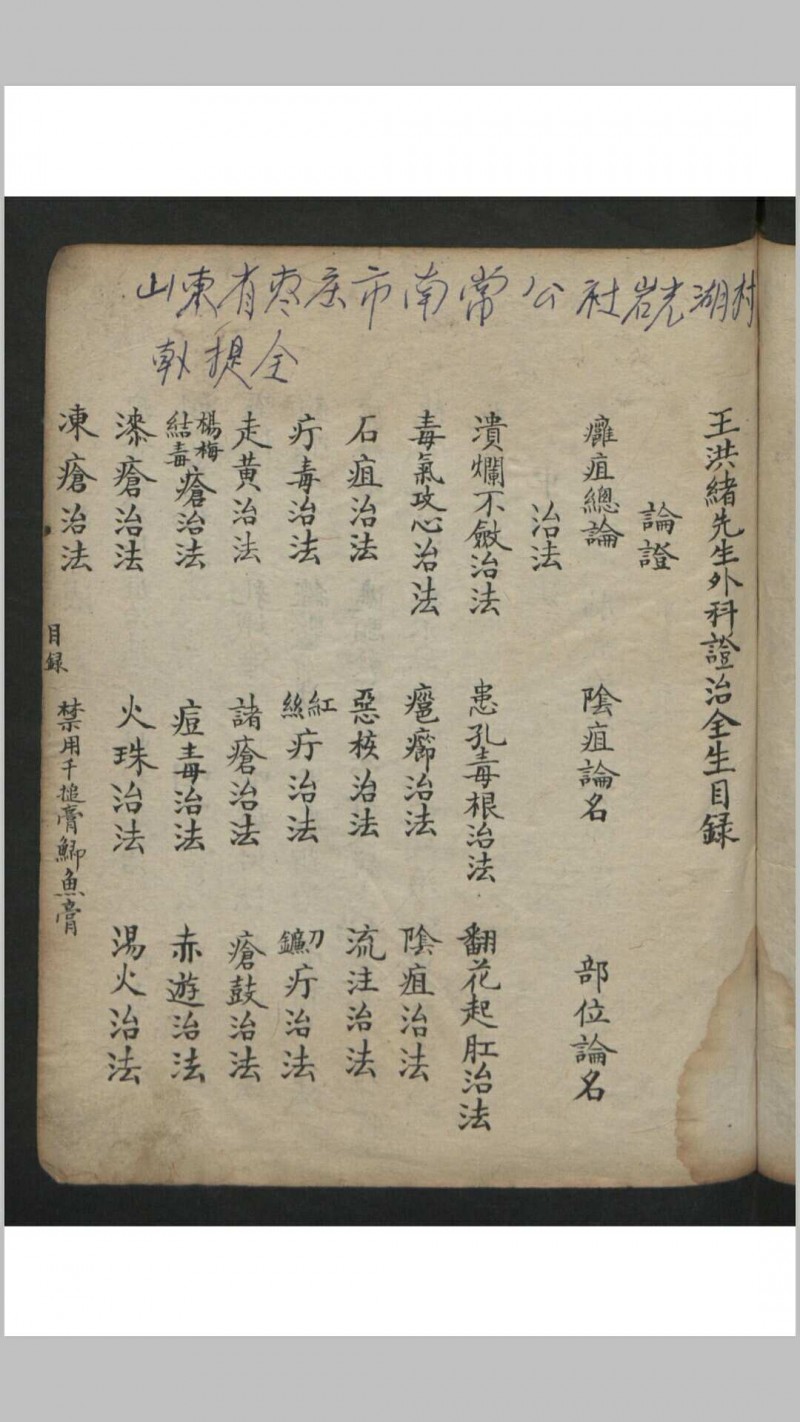 山東省枣庄市南常公社岩光湖村
王洪緒先生外科證治全生目録
論證
癰疽總論 陰疽論名 部位論名
治法
潰爛不斂治法 患孔毒根治法 翻花起肛治法
毒氣攻心治法 瘢癤治法 陰疽治法
石疽治法 惡核治法 流注治法
疔毒治法 紅絲疔治法 刀鐮疔治法
走黄治法 諸瘡治法 瘡鼓治法
楊梅結毒瘡治法 痘毒治法 赤遊治法
漆瘡治法 火珠治法 湯火治法
凍瘡治法
目録
禁用千搥膏鯽魚膏